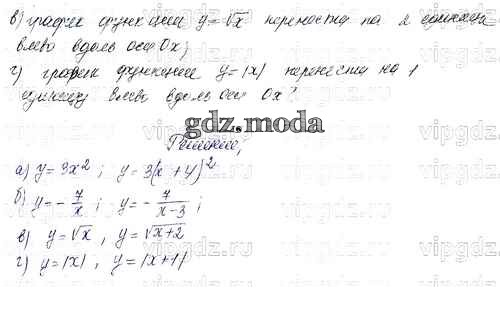 в) график функции y=√x перенести на 2 единицы
влево вдоль оси Ox;
г) график функции y=|x| перенести на 1
единицу влево вдоль оси Ox?
gdz.moda
Решение;
а) y=3x²; y=3(x+4)²
б) y=-7/x; y=-7/(x-3);
в) y=√x, y=√(x+2)
г) y=|x|, y=|x+1|